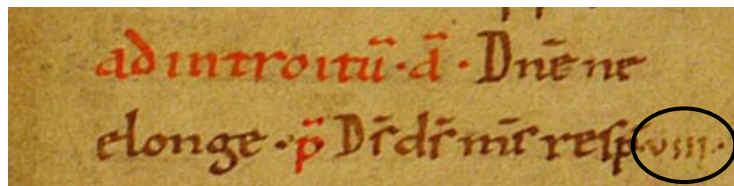 ad introitū· ā · Dnē ne
elonge · p̄ D̄s d̄s m̄s resp̄ · viii ·